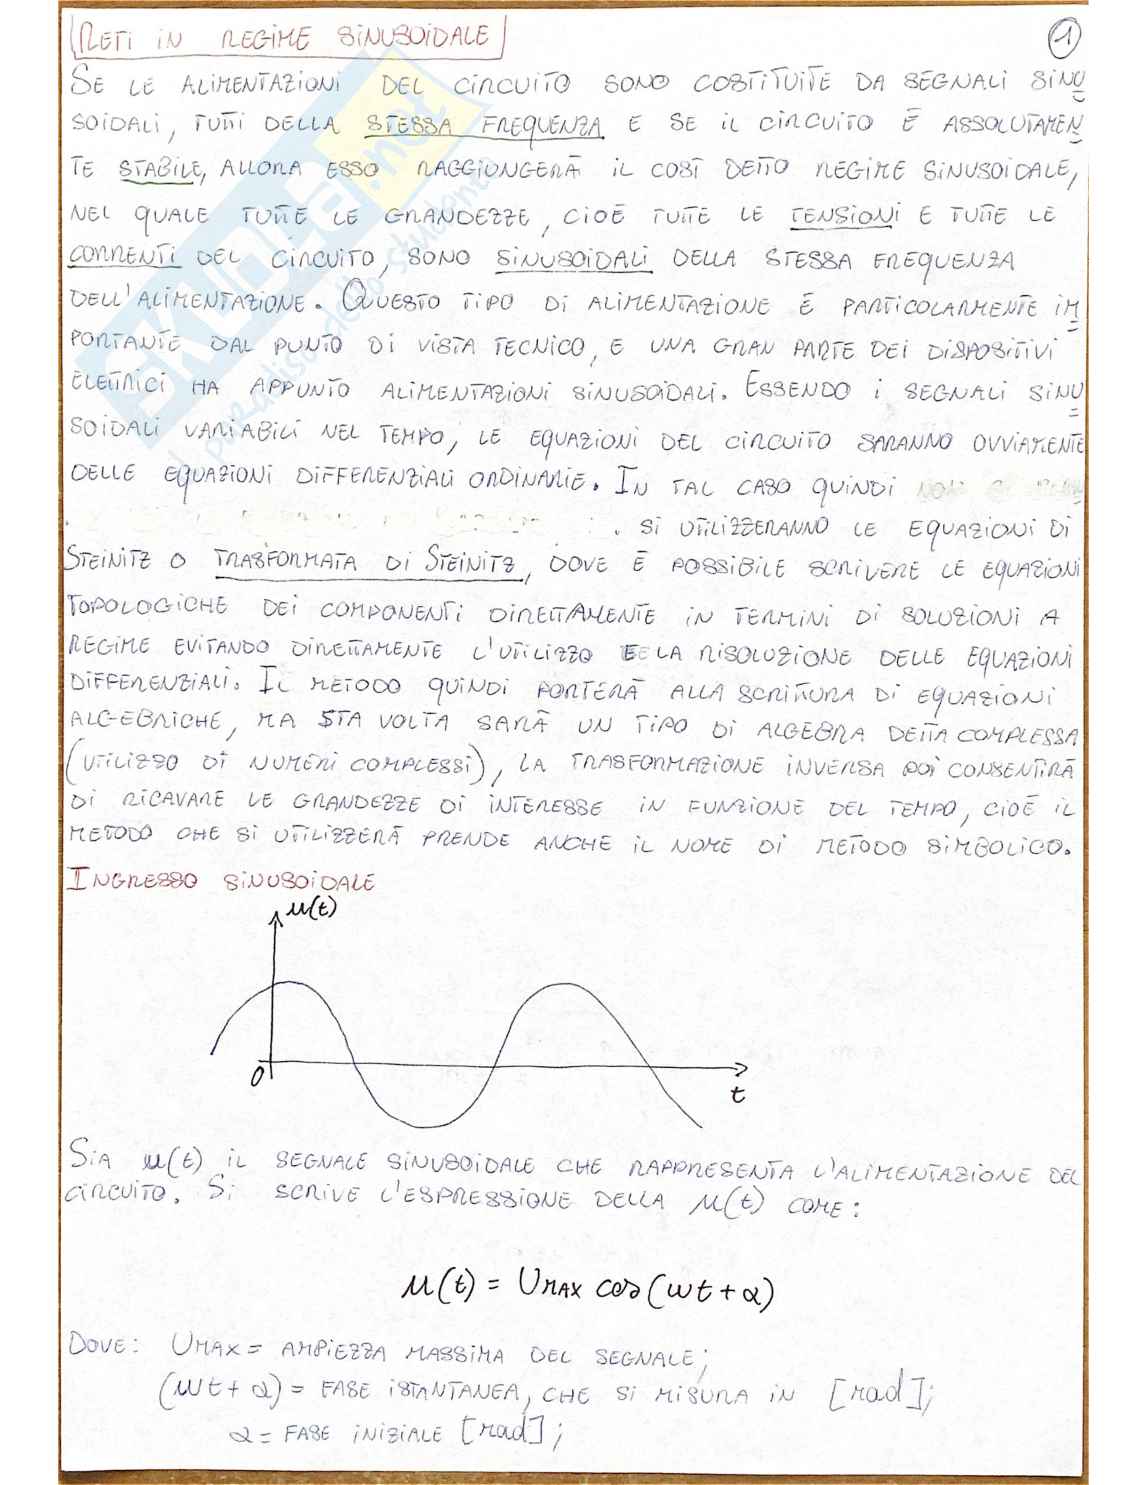 RETI IN REGIME SINUSOIDALE
1
SE LE ALIMENTAZIONI DEL CIRCUITO SONO COSTITUITE DA SEGNALI SINU
SOIDALI, TUTTI DELLA STESSA FREQUENZA E SE IL CIRCUITO È ASSOLUTAMEN
TE STABILE, ALLORA ESSO RAGGIUNGERÀ IL COSÌ DETTO REGIME SINUSOIDALE,
NEL QUALE TUTTE LE GRANDEZZE, CIOÈ TUTTE LE TENSIONI E TUTTE LE
CORRENTI DEL CIRCUITO, SONO SINUSOIDALI DELLA STESSA FREQUENZA
DELL'ALIMENTAZIONE. QUESTO TIPO DI ALIMENTAZIONE È PARTICOLARMENTE IM
PORTANTE DAL PUNTO DI VISTA TECNICO, E UNA GRAN PARTE DEI DISPOSITIVI
ELETTRICI HA APPUNTO ALIMENTAZIONI SINUSOIDALI. ESSENDO I SEGNALI SINU
SOIDALI VARIABILI NEL TEMPO, LE EQUAZIONI DEL CIRCUITO SARANNO OVVIAMENTE
DELLE EQUAZIONI DIFFERENZIALI ORDINARIE. IN TAL CASO QUINDI
. SI UTILIZZERANNO LE EQUAZIONI DI
STEINITZ O TRASFORMATA DI STEINITZ, DOVE È POSSIBILE SCRIVERE LE EQUAZIONI
TOPOLOGICHE DEI COMPONENTI DIRETTAMENTE IN TERMINI DI SOLUZIONI A
REGIME EVITANDO DIRETTAMENTE L'UTILIZZO E LA RISOLUZIONE DELLE EQUAZIONI
DIFFERENZIALI. IL METODO QUINDI PORTERÀ ALLA SCRITTURA DI EQUAZIONI
ALGEBRICHE, MA STA VOLTA SARÀ UN TIPO DI ALGEBRA DETTA COMPLESSA
(UTILIZZO DI NUMERI COMPLESSI), LA TRASFORMAZIONE INVERSA POI CONSENTIRÀ
DI RICAVARE LE GRANDEZZE DI INTERESSE IN FUNZIONE DEL TEMPO, CIOÈ IL
METODO CHE SI UTILIZZERÀ PRENDE ANCHE IL NOME DI METODO SIMBOLICO.
INGRESSO SINUSOIDALE
u(t)
O
t
SIA u(t) IL SEGNALE SINUSOIDALE CHE RAPPRESENTA L'ALIMENTAZIONE DEL
CIRCUITO. SI SCRIVE L'ESPRESSIONE DELLA u(t) COME:
u(t) = UMAX cos(ωt + α)
DOVE: UMAX = AMPIEZZA MASSIMA DEL SEGNALE;
(ωt + α) = FASE ISTANTANEA, CHE SI MISURA IN [rad];
α = FASE INIZIALE [rad];
SKUOLA.net
il paradiso dello studente